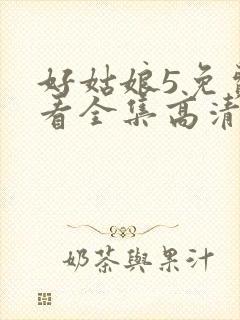 好姑娘5免費
看全集高清
奶茶與果汁